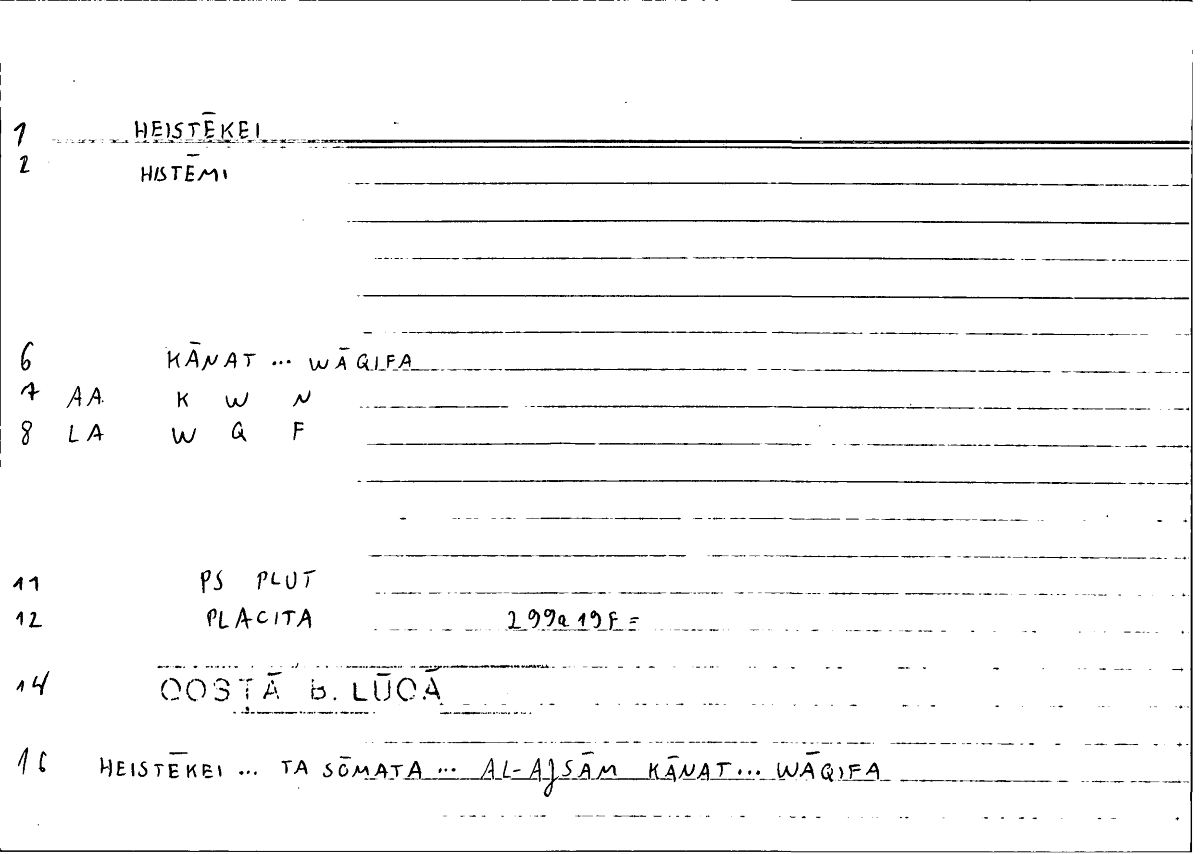 1 HEISTĒKEI
2 HISTĒMI
6 KĀNAT ... WĀQIFA
7 AA K W N
8 LA W Q F
11 PS PLUT
12 PLACITA 299a19f =
14 QOSṬĀ b. LŪQĀ
16 HEISTĒKEI ... TA SŌMATA ... AL-AJSĀM KĀNAT ... WĀQIFA